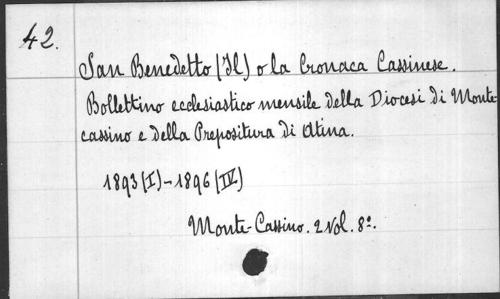 42.
San Benedetto (Il) o la Cronaca Cassinese.
Bollettino ecclesiastico mensile della Diocesi di Monte-
cassino e della Prepositura di Atina.
1893 (I) - 1896 (IV)
Monte-Cassino. 2 Vol. 8º.